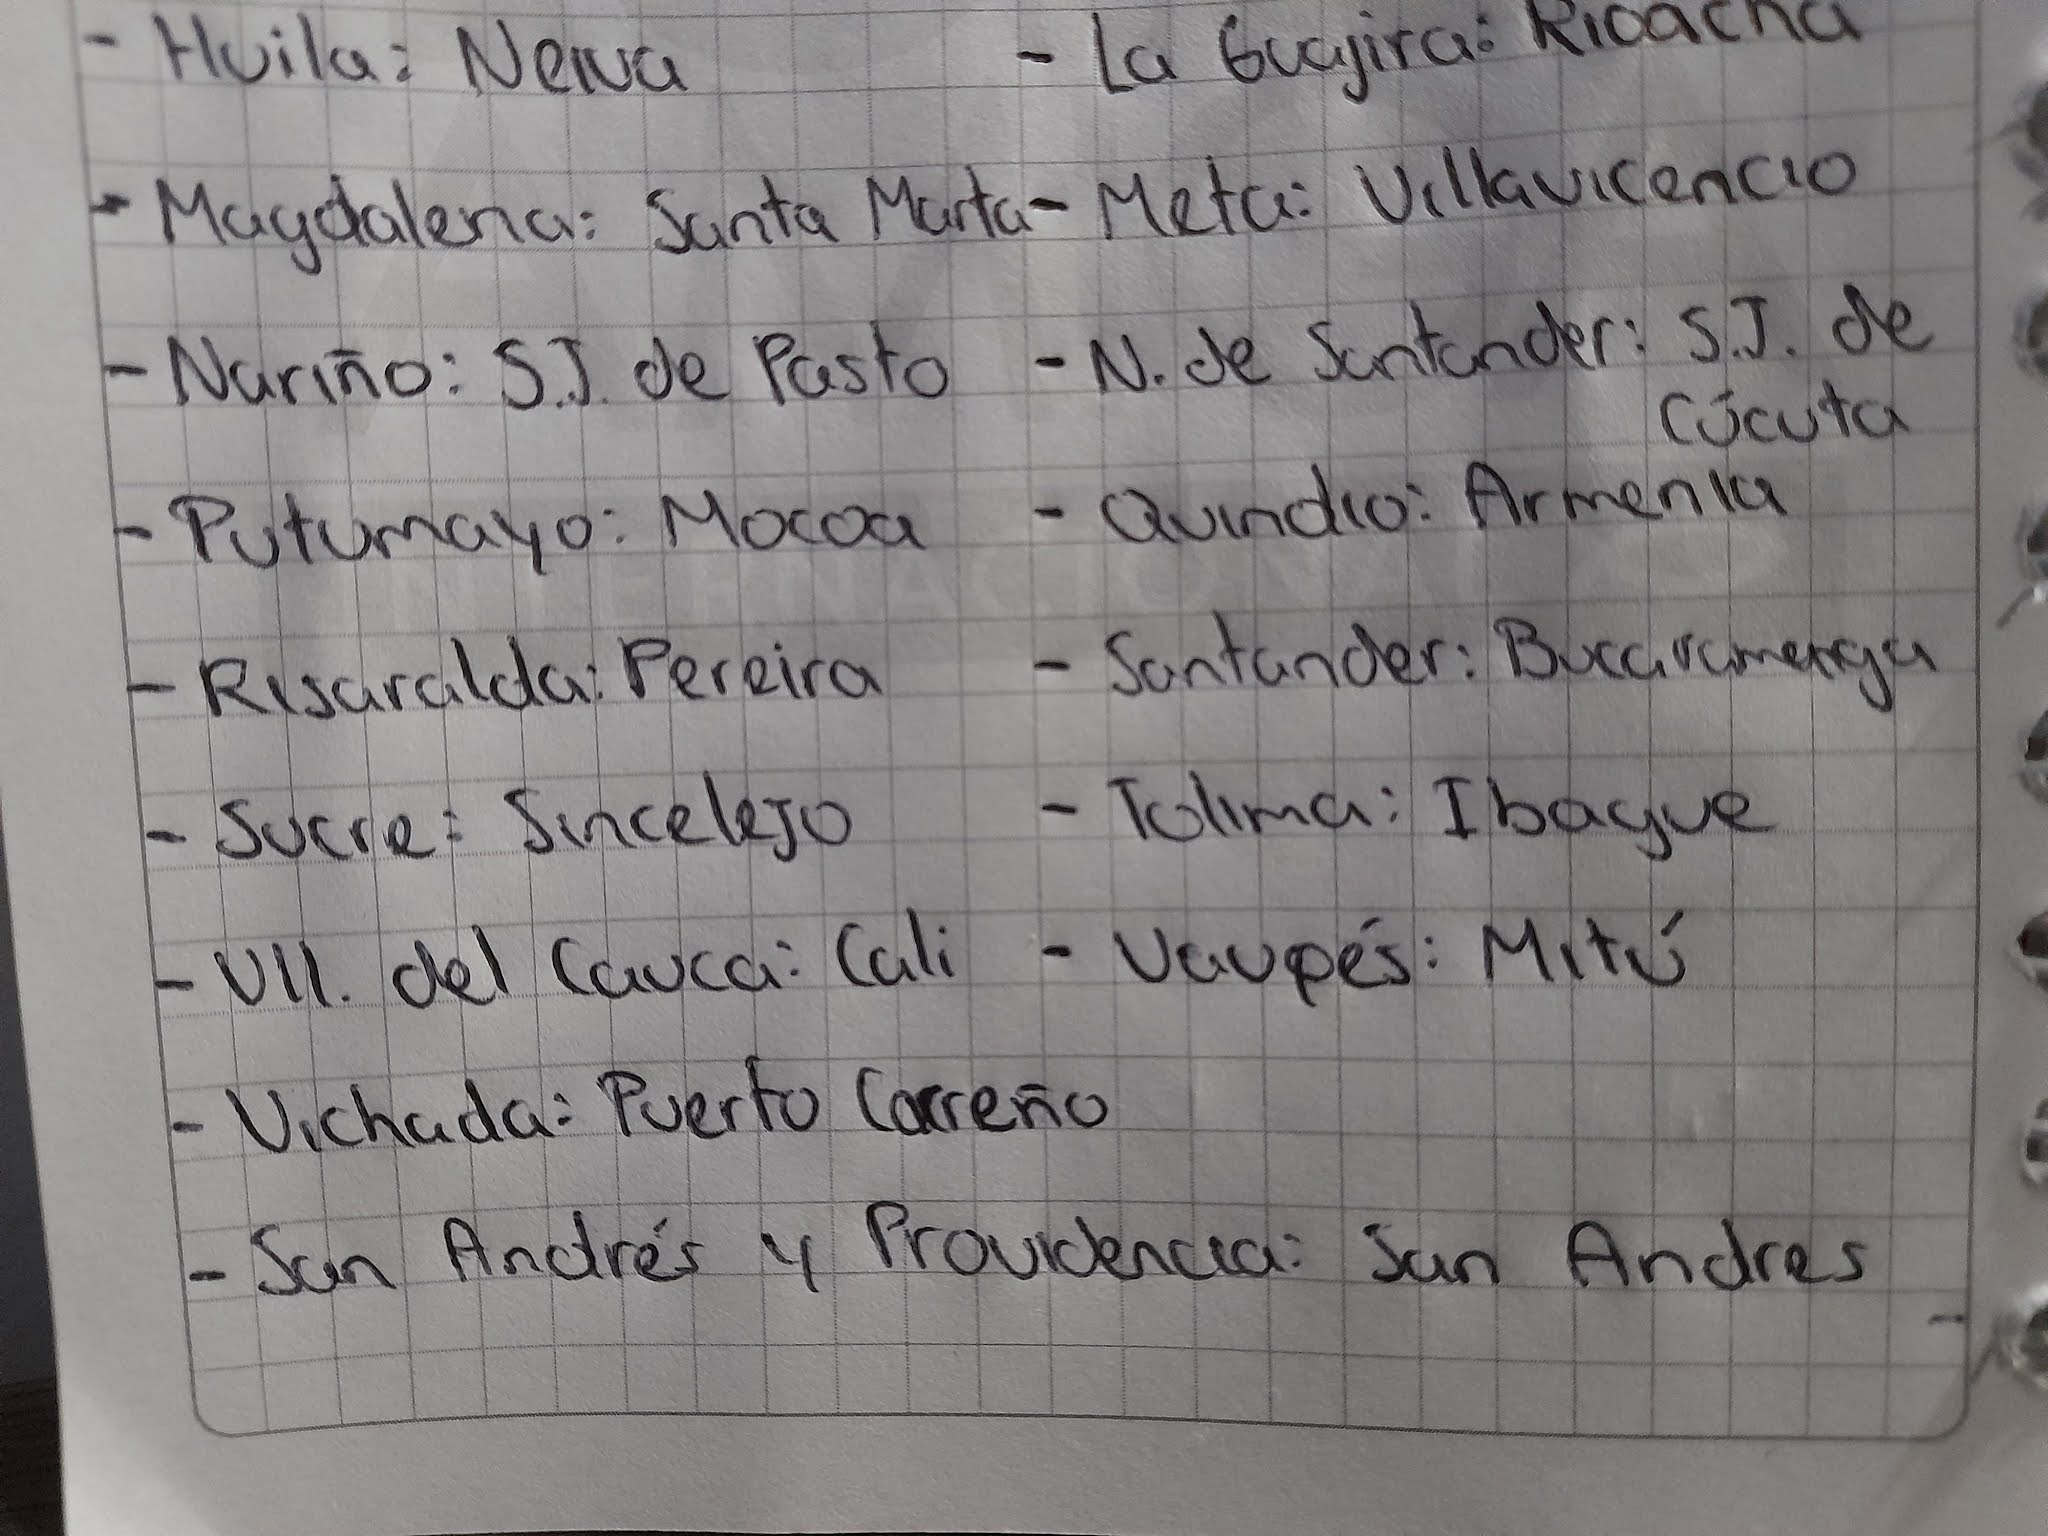 - Huila: Neiva - La Guajira: Rioacha
- Magdalena: Santa Marta - Meta: Villavicencio
- Nariño: S.J. de Pasto - N. de Santander: S.J. de
Cúcuta
- Putumayo: Mocoa - Quindio: Armenia
- Risaralda: Pereira - Santander: Bucaramenga
- Sucre: Sincelejo - Tolima: Ibague
- Vll. del Cauca: Cali - Vaupés: Mitú
- Vichada: Puerto Carreño
- San Andrés y Providencia: San Andres